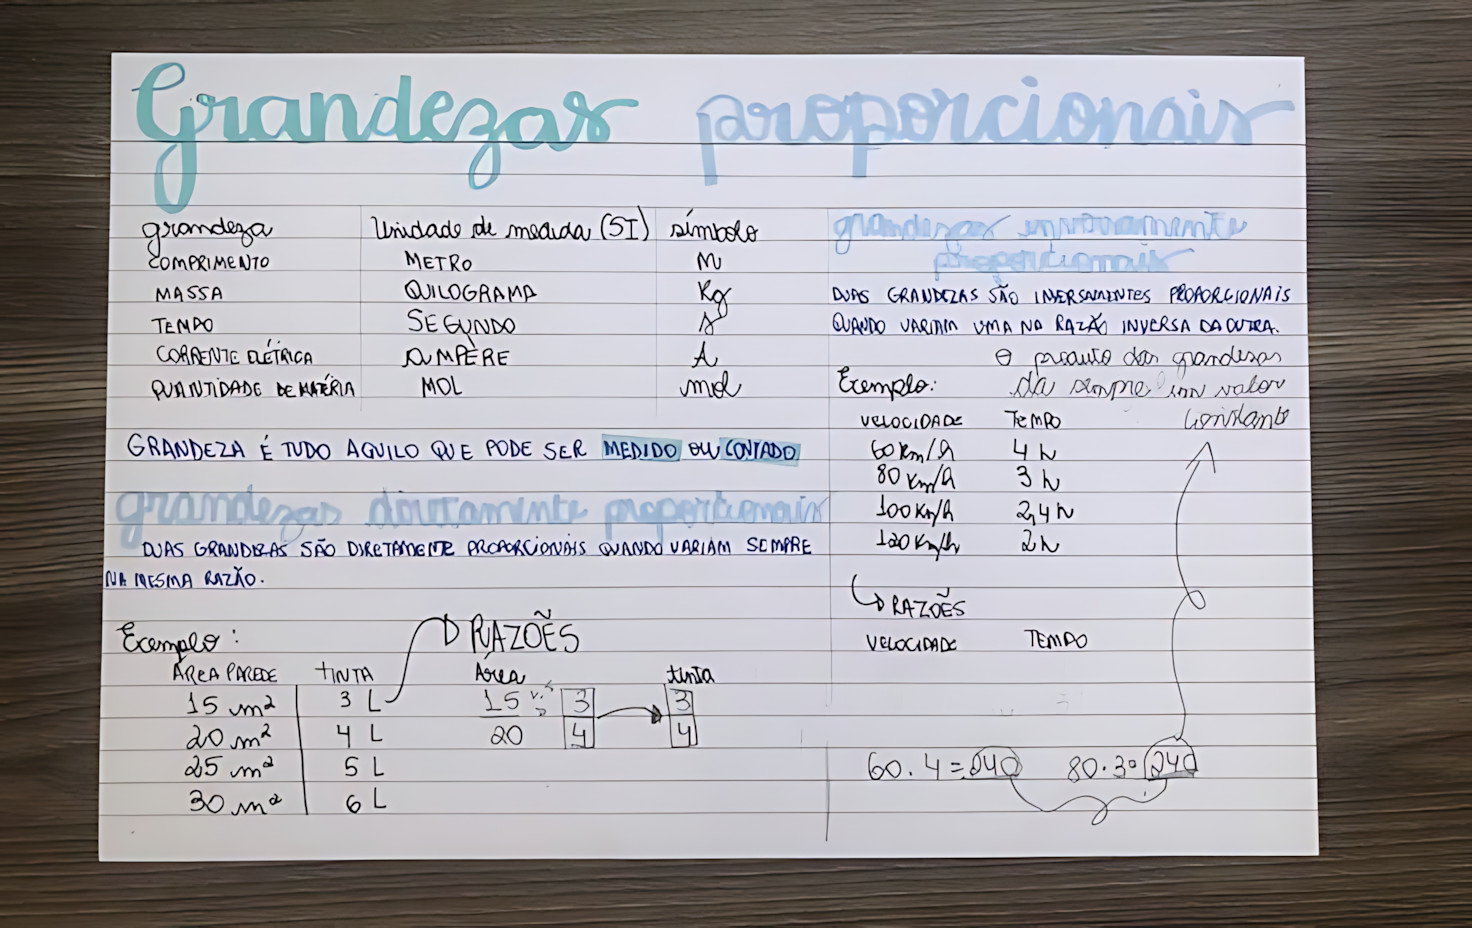 Grandezas proporcionais
grandeza Unidade de medida (SI) símbolo
COMPRIMENTO METRO M
MASSA QUILOGRAMA Kg
TEMPO SEGUNDO s
CORRENTE ELÉTRICA AMPÈRE A
QUANTIDADE DE MATÉRIA MOL mol
GRANDEZA É TUDO AQUILO QUE PODE SER MEDIDO OU CONTADO
grandezas diretamente proporcionais
DUAS GRANDEZAS SÃO DIRETAMENTE PROPORCIONAIS QUANDO VARIAM SEMPRE
NA MESMA RAZÃO.
Exemplo:
ÁREA PAREDE TINTA
15 m² 3 L
20 m² 4 L
25 m² 5 L
30 m² 6 L
RAZÕES
Área tinta
15 3 3
20 4 4
grandezas inversamente
proporcionais
DUAS GRANDEZAS SÃO INVERSAMENTES PROPORCIONAIS
QUANDO VARIAM UMA NA RAZÃO INVERSA DA OUTRA.
O produto das grandezas
Exemplo: da sempre um valor
constante
VELOCIDADE TEMPO
60 Km/h 4 h
80 Km/h 3 h
100 Km/h 2,4 h
120 Km/h 2 h
RAZÕES
VELOCIDADE TEMPO
60.4=240 80.3=240